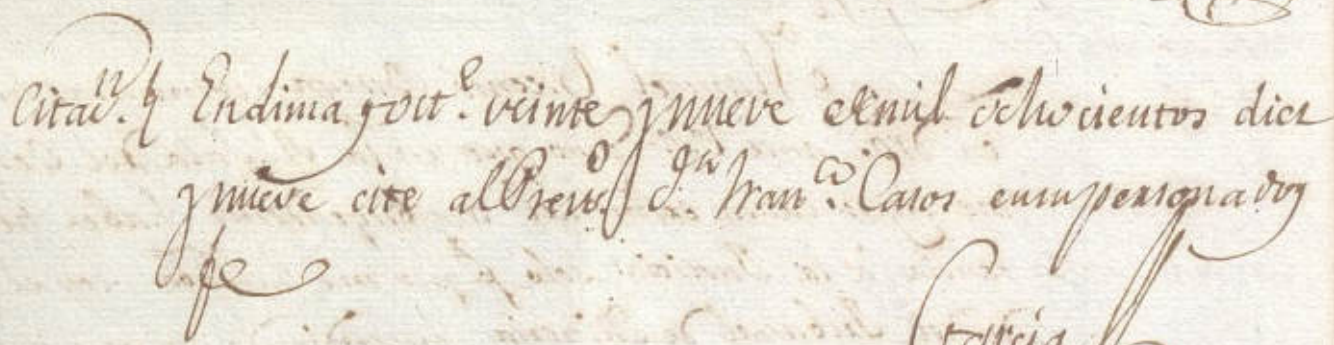 Citac.n En Lima y oct.e veinte y nueve de mil ochocientos diez
y nueve cite al Preu.o d.n Fran.co Caros en su persona doy
fe
Garcia